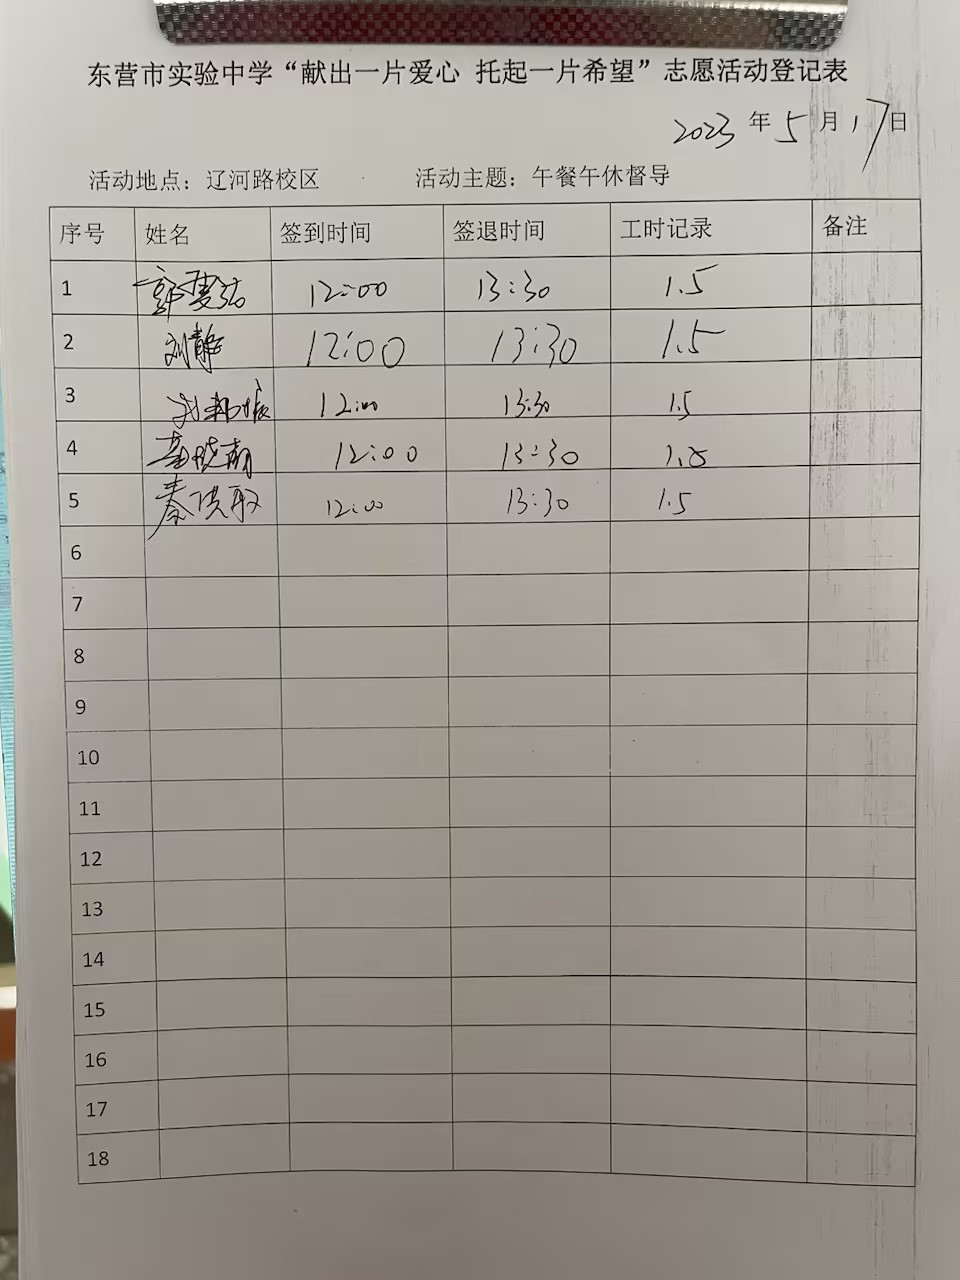 东营市实验中学“献出一片爱心 托起一片希望”志愿活动登记表
2023 年 5 月 17 日
活动地点：辽河路校区 活动主题：午餐午休督导
序号 姓名 签到时间 签退时间 工时记录 备注
1 12:00 13:30 1.5
2 刘静 12:00 13:30 1.5
3 12:00 13:30 1.5
4 12:00 13:30 1.5
5 12:00 13:30 1.5
6
7
8
9
10
11
12
13
14
15
16
17
18